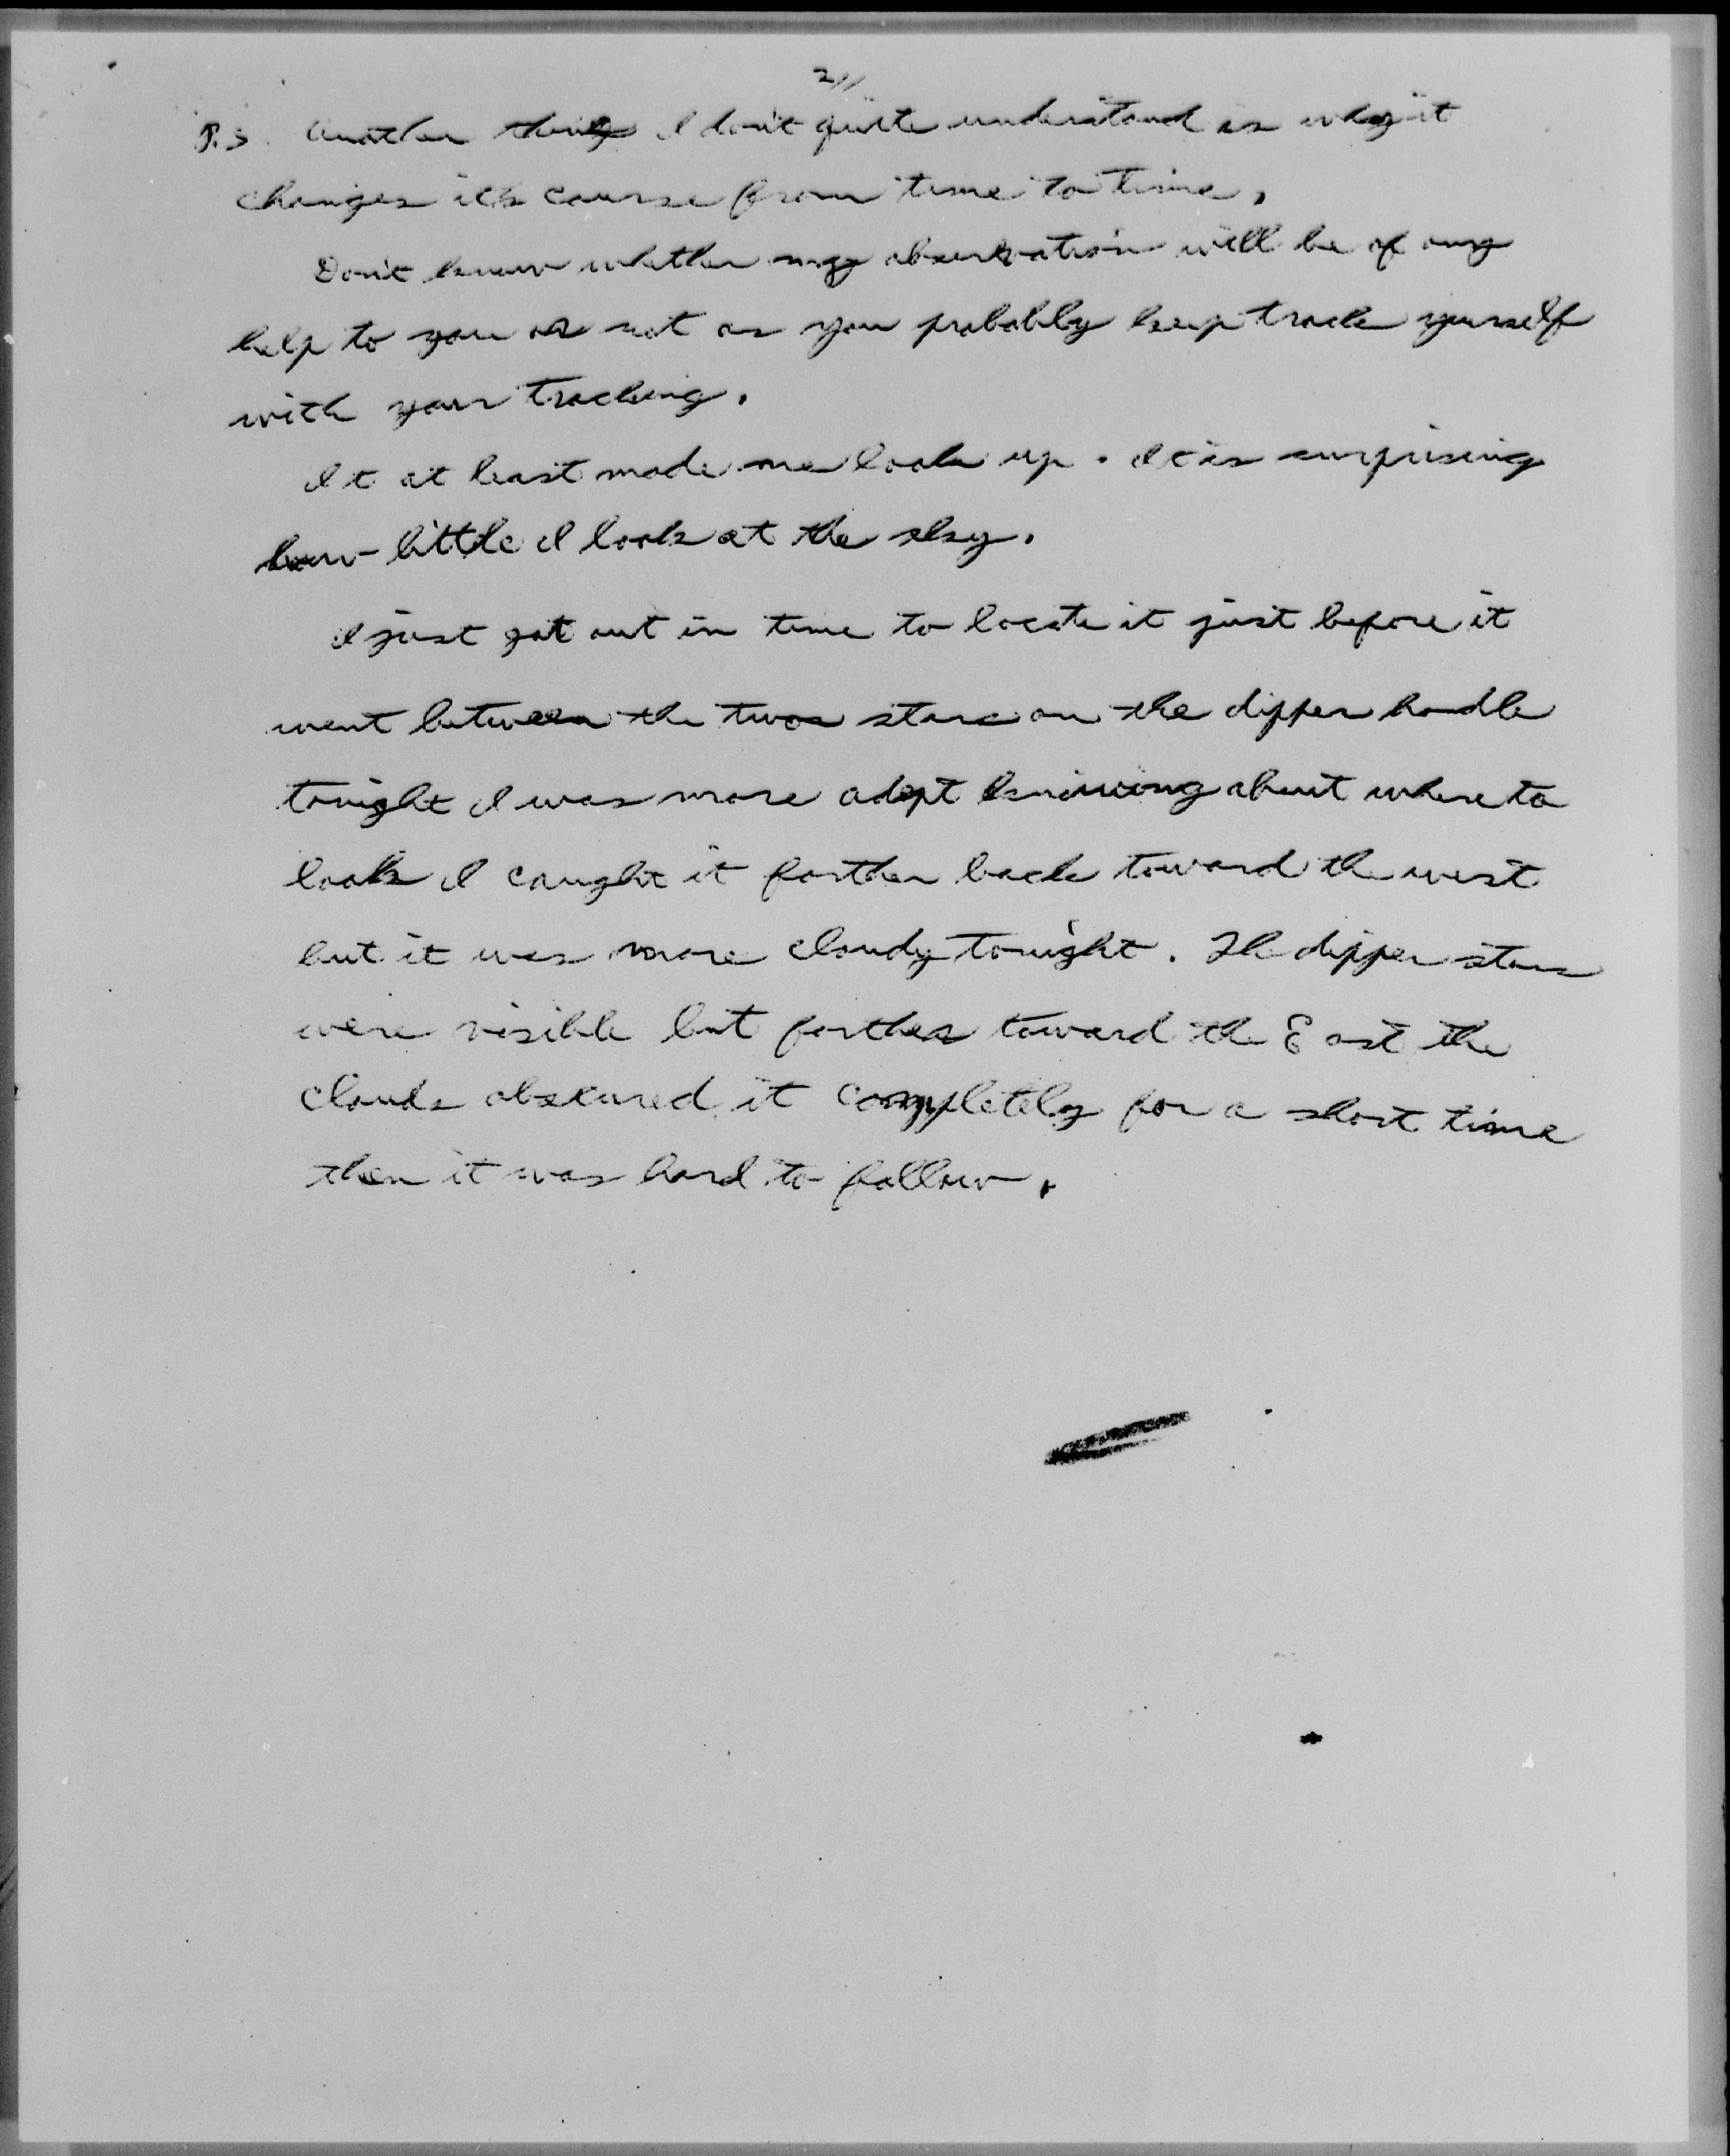 2//
P.S. Another thing I don't quite understand is why it
changes it's course from time to time.
Don't know whether my observation will be of any
help to you or not as you probably keep track yourself
with your tracking.
It at least made me look up. It is surprising
how little I look at the sky.
I just got out in time to locate it just before it
went between the two stars on the dipper handle
tonight I was more adept knowing about where to
look I caught it farther back toward the west
but it was more cloudy tonight. The dipper stars
were visible but farther toward the East the
clouds obscured it completely for a short time
then it was hard to follow.